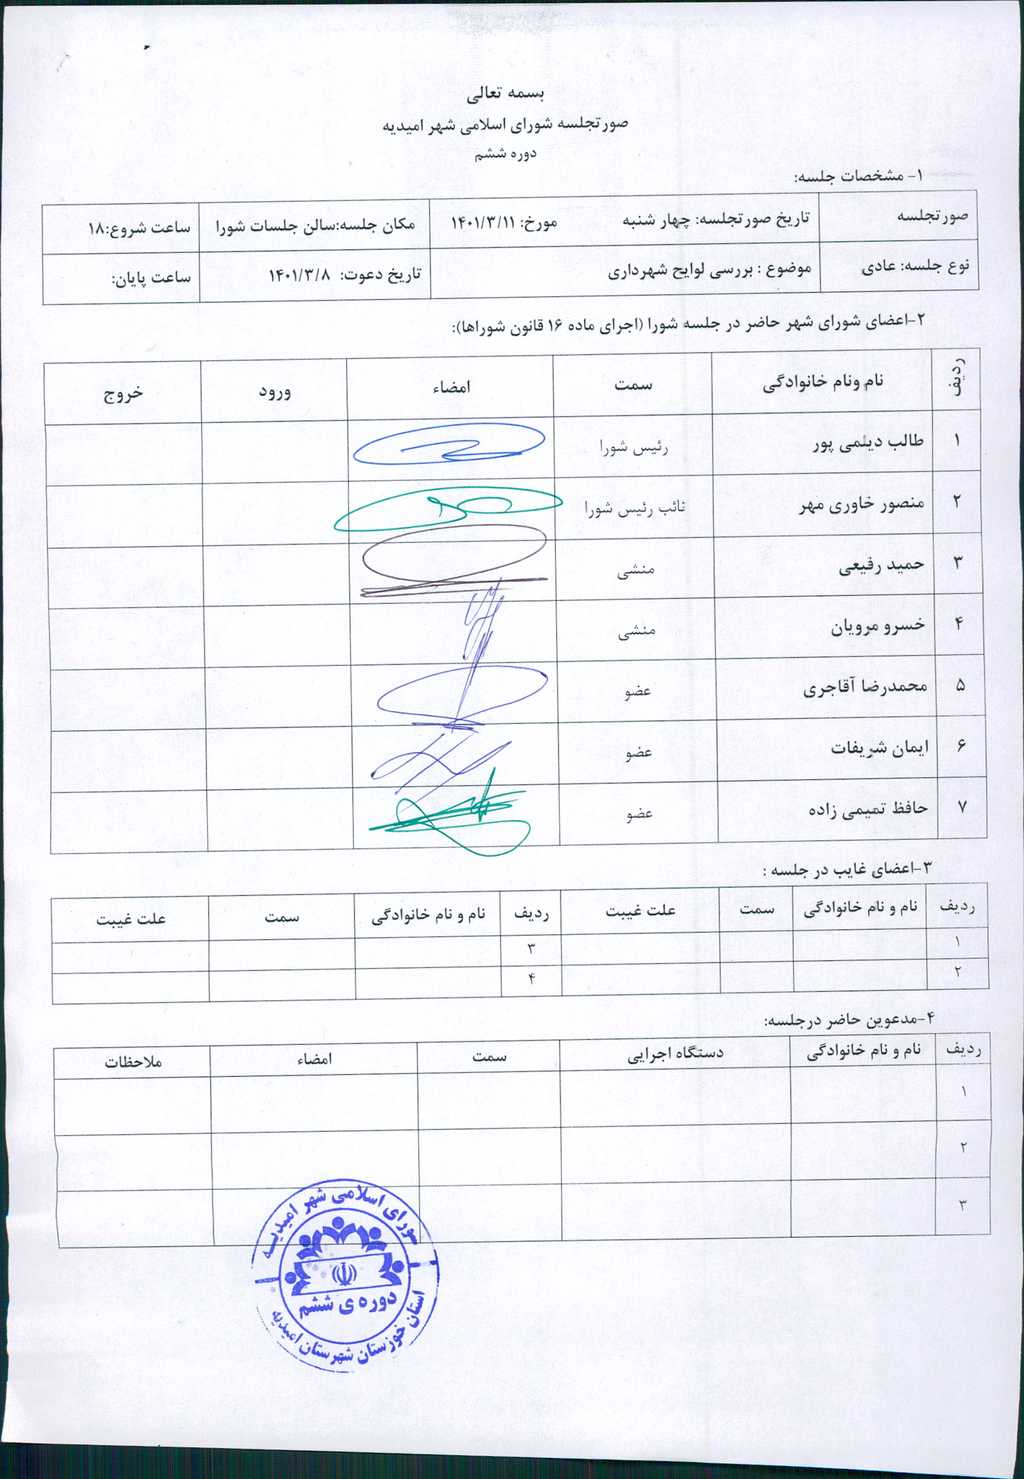 بسمه تعالی
صورتجلسه شورای اسلامی شهر امیدیه
دوره ششم
۱- مشخصات جلسه:
صورتجلسه تاریخ صورتجلسه: چهار شنبه مورخ: ۱۴۰۱/۳/۱۱ مکان جلسه:سالن جلسات شورا ساعت شروع:۱۸
نوع جلسه: عادی موضوع : بررسی لوایح شهرداری تاریخ دعوت: ۱۴۰۱/۳/۸ ساعت پایان:
۲-اعضای شورای شهر حاضر در جلسه شورا (اجرای ماده ۱۶ قانون شوراها):
ردیف نام ونام خانوادگی سمت امضاء ورود خروج
۱ طالب دیلمی پور رئیس شورا
۲ منصور خاوری مهر نائب رئیس شورا
۳ حمید رفیعی منشی
۴ خسرو مرویان منشی
۵ محمدرضا آقاجری عضو
۶ ایمان شریفات عضو
۷ حافظ تمیمی زاده عضو
۳-اعضای غایب در جلسه :
ردیف نام و نام خانوادگی سمت علت غیبت ردیف نام و نام خانوادگی سمت علت غیبت
۱ ۳
۲ ۴
۴-مدعوین حاضر درجلسه:
ردیف نام و نام خانوادگی دستگاه اجرایی سمت امضاء ملاحظات
۱
۲
۳
شورای اسلامی شهر امیدیه
دوره ی ششم
استان خوزستان شهرستان امیدیه